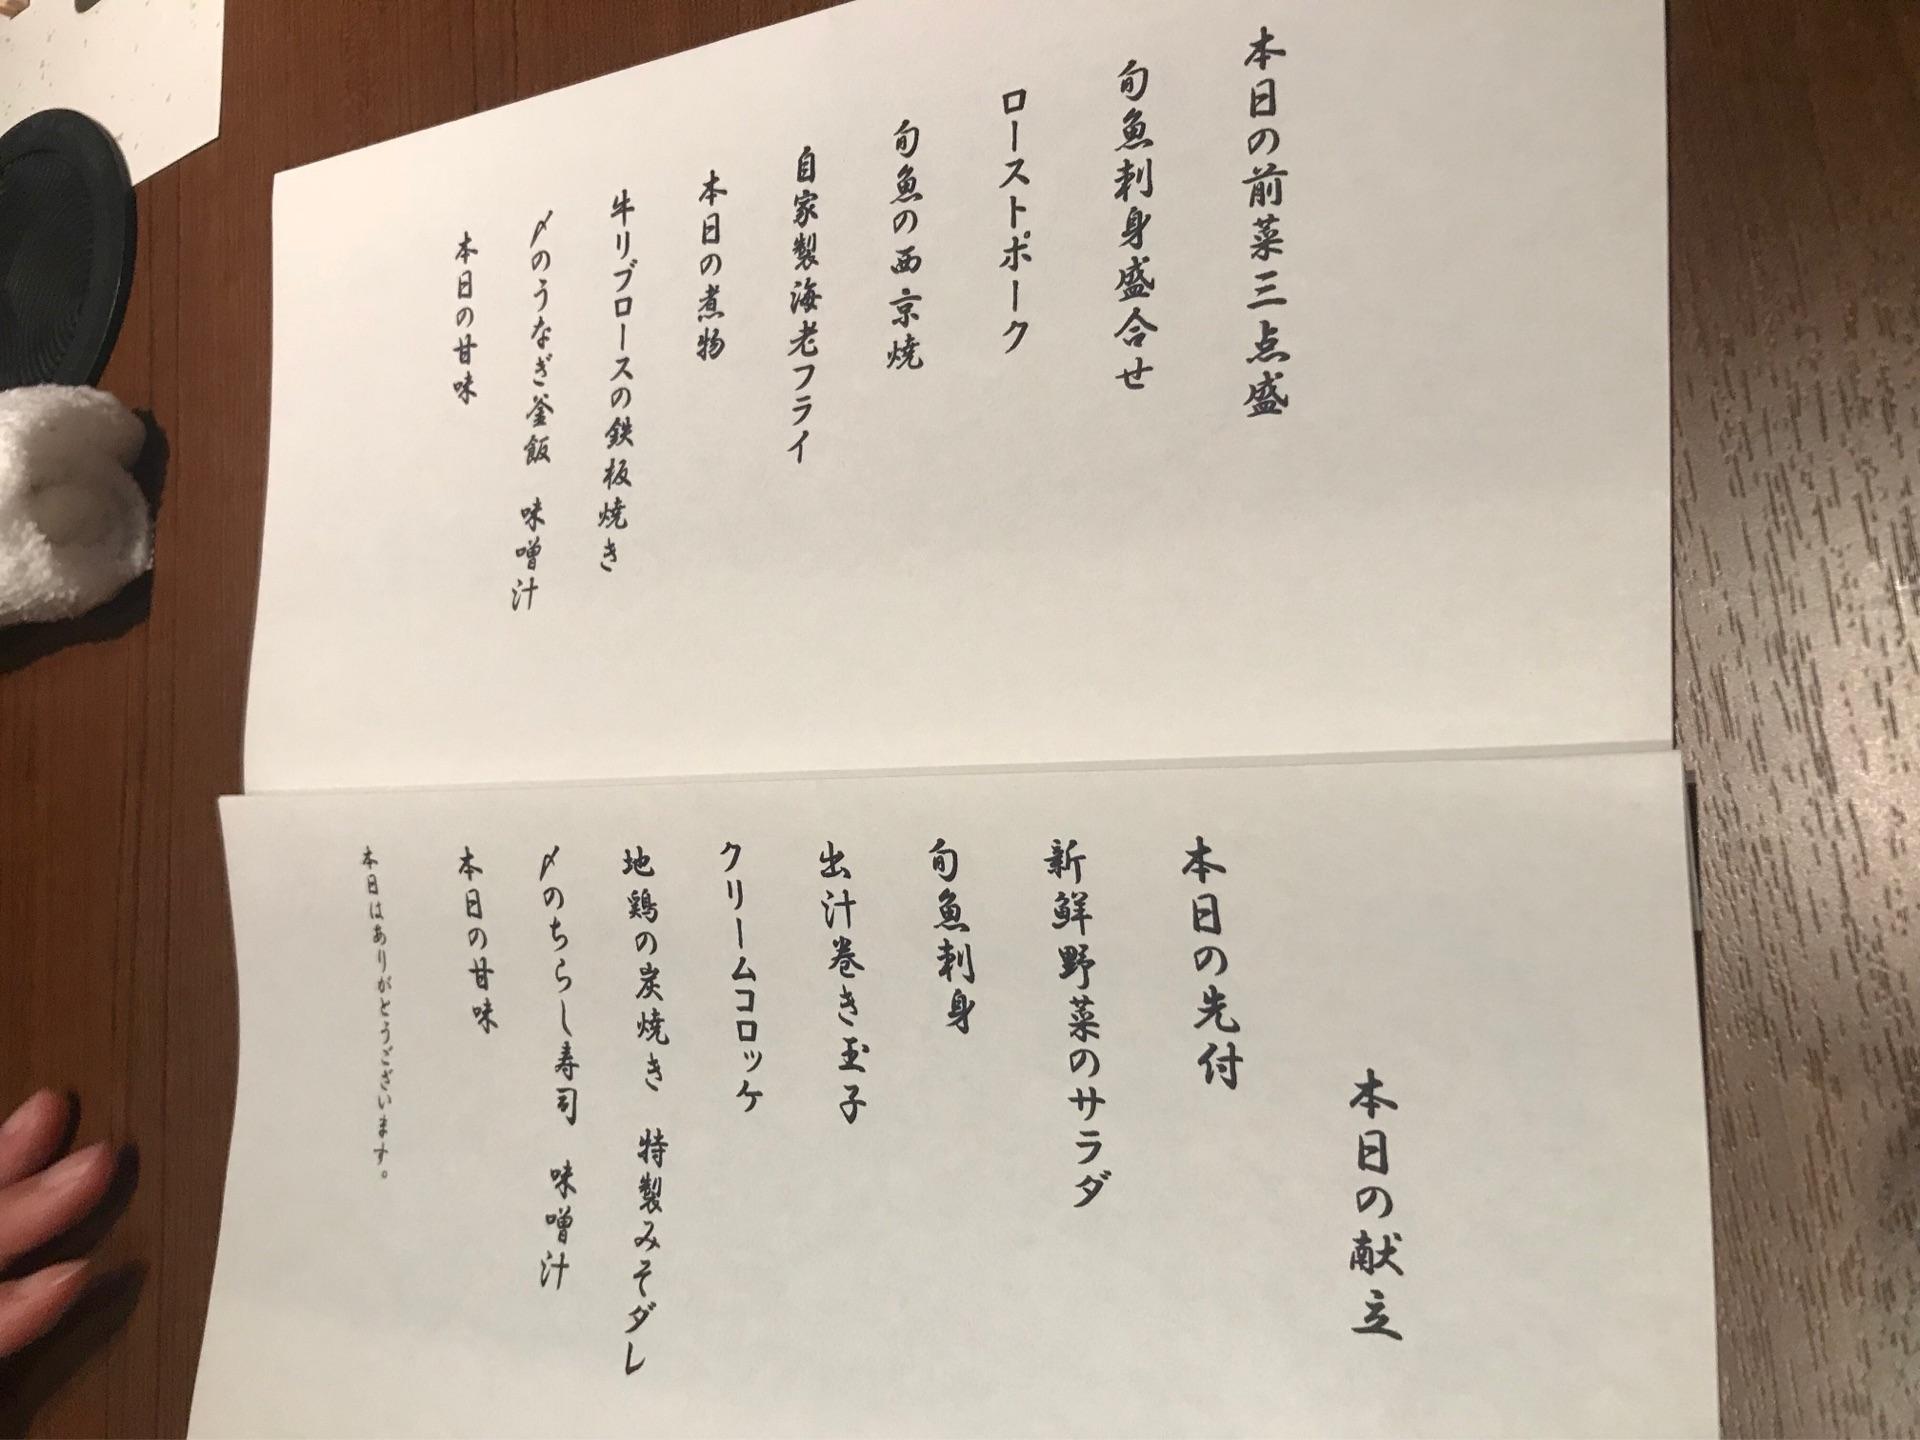 本日の前菜三点盛
旬魚刺身盛合せ
ローストポーク
旬魚の西京焼
自家製海老フライ
本日の煮物
牛リブロースの鉄板焼き
〆のうなぎ釜飯　味噌汁
本日の甘味
本日の献立
本日の先付
新鮮野菜のサラダ
旬魚刺身
出汁巻き玉子
クリームコロッケ
地鶏の炭焼き　特製みそダレ
〆のちらし寿司　味噌汁
本日の甘味
本日はありがとうございます。